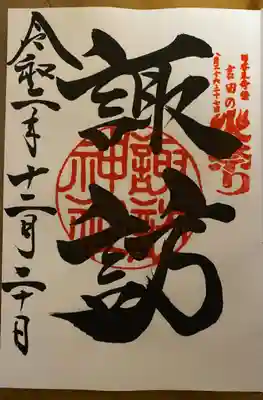 日本三奇祭
吉田の火祭り
八月二十六・二十七日
諏訪
諏訪神社
令和二年十二月二十日